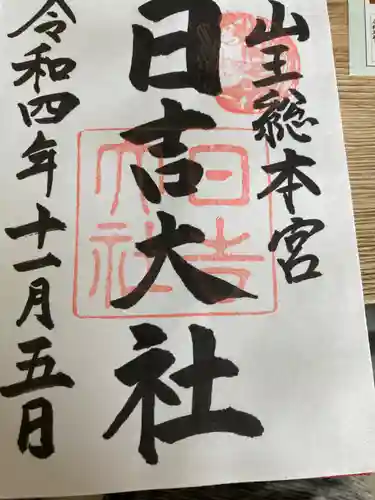 山王総本宮
日吉大社
令和四年十一月五日
日吉
大社